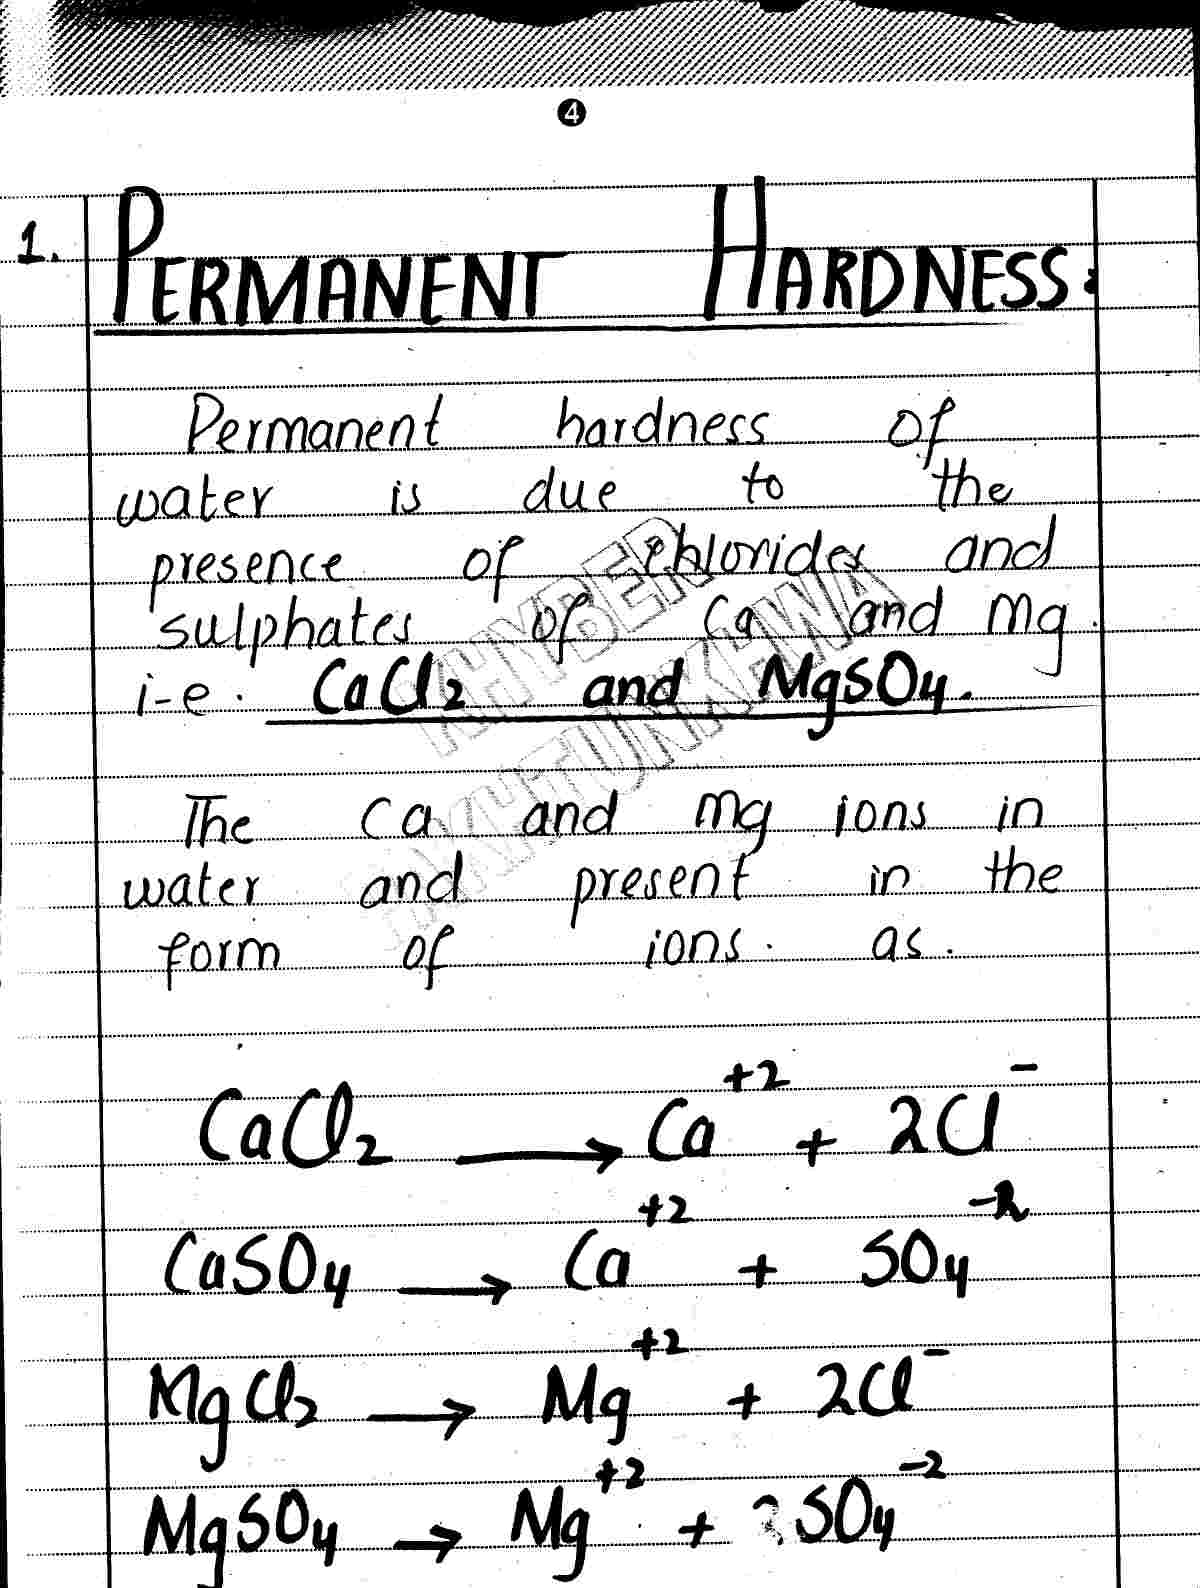 4
1. PERMANENT HARDNESS:
Permanent hardness of
water is due to the
presence of chlorides and
sulphates of Ca and Mg.
i-e. CaCl₂ and MgSO₄.
KHYBER
PAKHTUNKHWA
The Ca and Mg ions in
water and present in the
form of ions. as.
CaCl₂ → Ca⁺² + 2Cl⁻
CaSO₄ → Ca⁺² + SO₄⁻²
MgCl₂ → Mg⁺² + 2Cl⁻
MgSO₄ → Mg⁺² + SO₄⁻²